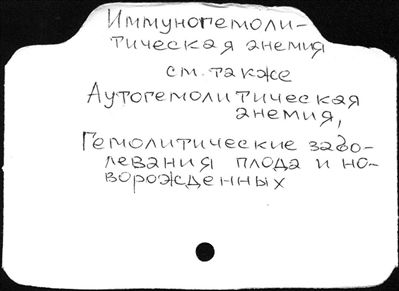 Иммуногемоли-
тическая анемия
см. также
Аутогемолитическая
анемия,
Гемолитические забо-
левания плода и но-
ворожденных